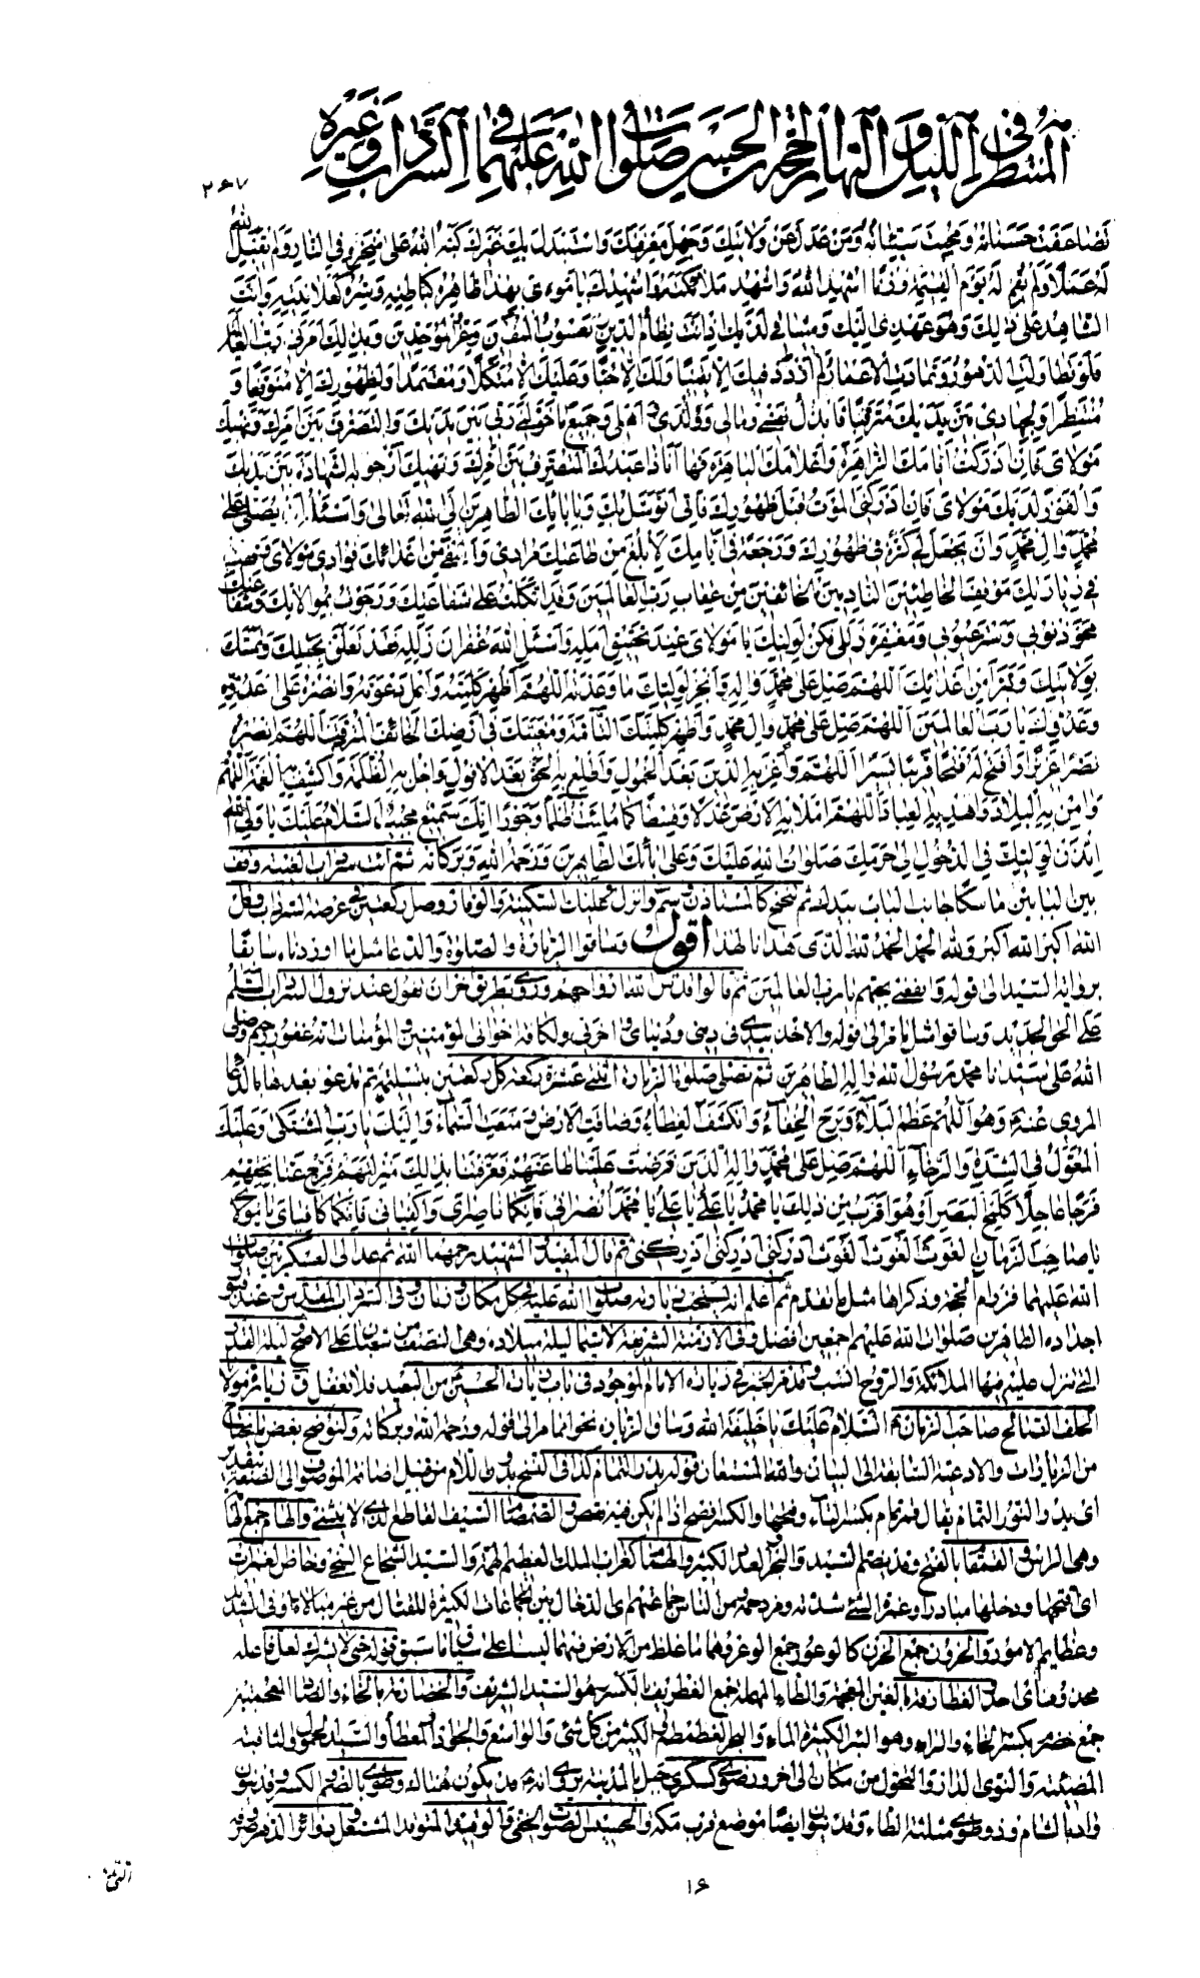 المنتظر في الليل والنهار الحجة بن الحسن صلوات الله عليهما في السرداب وغيره
٢٦٧
تضاعفت حسناته ومحيت سيئاته ومن عدل عن ولايتك وجهل معرفتك واستبدل بك غيرك كبه الله على منخره في النار ولم يقبل الله
له عملا ولم يقم له يوم القيمة وزنا اشهد الله واشهد ملائكته واشهدك يا مولاي بهذا ظاهره كباطنه وسره كعلانيته وانت
الشاهد على ذلك وهو عهدي اليك وميثاقي لديك اذ انت نظام الدين ويعسوب المتقين وعز الموحدين وبذلك امرني رب العالمين
فلو تطاولت الدهور وتمادت الاعمار لم ازدد فيك الا يقينا ولك الا حبا وعليك الا متكلا ومعتمدا ولظهورك الا متوقعا و
منتظرا ولجهادي بين يديك مترقبا فابذل نفسي ومالي وولدي واهلي وجميع ما خولني ربي بين يديك والتصرف بين امرك ونهيك
مولاي فان ادركت ايامك الزاهرة واعلامك الباهرة فها انا ذا عبدك المتصرف بين امرك ونهيك ارجو به الشهادة بين يديك
والفوز لديك مولاي فان ادركني الموت قبل ظهورك فاني اتوسل بك وبابائك الطاهرين الى الله تعالى واسئله ان يصلي على
محمد وال محمد وان يجعل لي كرة في ظهورك ورجعة في ايامك لابلغ من طاعتك مرادي واشفي من اعدائك فؤادي مولاي وقفت
في زيارتك موقف الخاطئين النادمين الخائفين من عقاب رب العالمين وقد اتكلت على شفاعتك ورجوت بموالاتك وشفاعتك
محو ذنوبي وستر عيوبي ومغفرة زللي فكن لوليك يا مولاي عند تحقيق امله واسئل الله غفران زلله فقد تعلق بحبلك وتمسك
بولايتك وتبرأ من اعدائك اللهم صل على محمد واله وانجز لوليك ما وعدته اللهم اظهر كلمته واعل دعوته وانصره على عدوه
وعدوك يا رب العالمين اللهم صل على محمد وال محمد واظهر كلمتك التامة ومغيبك في ارضك الخائف المترقب اللهم انصره
نصرا عزيزا وافتح له فتحا قريبا يسيرا اللهم واعز به الدين بعد الخمول واطلع به الحق بعد الافول واجل به الظلمة واكشف به الغمة اللهم
وامن به البلاد واهد به العباد اللهم املا به الارض عدلا وقسطا كما ملئت ظلما وجورا انك سميع مجيب السلام عليك يا ولي الله
ائذن لوليك في الدخول الى حرمك صلوات الله عليك وعلى ابائك الطاهرين ورحمة الله وبركاته ثم ائت سرداب الغيبة وقف
بين البابين ماسكا جانب الباب بيدك ثم تنحنح كالمستاذن وسم وانزل وعليك السكينة والوقار وصل ركعتين في عرصة السرداب وقل
الله اكبر الله اكبر ولله الحمد الحمد لله الذي هدانا لهذا اقول وساقوا الزيارة والصلوة والدعا مثل ما اوردناه سابقا
برواية السيد الى قوله واشفعني بحقهم يا رب العالمين ثم قالوا قدس الله ارواحهم وروي بطريق اخر ان تقول عند نزول السرداب السلام
على الحق الجديد وساقوا مثل ما مر الى قوله والاخذ بيدي في ديني ودنياي واخرتي ولكافة اخواني المؤمنين والمؤمنات انه غفور رحيم وصلى
الله على سيدنا محمد رسول الله واله الطاهرين ثم تصلي صلوة الزيارة اثنتي عشرة ركعة كل ركعتين بتسليمة ثم تدعو بعدها بالدعا
المروي عنه وهو اللهم عظم البلاء وبرح الخفاء وانكشف الغطاء وضاقت الارض ومنعت السماء واليك يا رب المشتكى وعليك
المعول في الشدة والرخاء اللهم صل على محمد واله الذين فرضت علينا طاعتهم فعرفتنا بذلك منزلتهم فرج عنا بحقهم
فرجا عاجلا كلمح البصر او هو اقرب من ذلك يا محمد يا علي يا علي يا محمد انصراني فانكما ناصراي واكفياني فانكما كافياي يا مولاي
يا صاحب الزمان الغوث الغوث الغوث ادركني ادركني ادركني ثم قال المفيد والشهيد رحمهما الله ثم عد الى العسكريين صلوات
الله عليهما فزر ام الحجة وذكراها مثل ما تقدم ثم اعلم انه يستحب زيارته صلوات الله عليه في كل مكان وزمان وفي السرداب المقدس وعند قبور
اجداده الطاهرين صلوات الله عليهم اجمعين افضل وفي الازمنة الشريفة لا سيما ليلة ميلاده وهي النصف من شعبان على الاصح وليلة القدر
التي تنزل عليه فيها الملائكة والروح انسب وقد مر الخبر في زيارة الامام الموجود في باب زيارة الحسين من البعيد فلا تغفل وفي زيارة مولانا
الخلف الصالح صاحب الزمان السلام عليك يا خليفة الله وساق الزيارة نحوا مما مر الى قوله ورحمة الله وبركاته ولنوضح بعض ما يحتاج
من الزيارات والادعية السابقة الى البيان والله المستعان قوله بدر التمام كذا في النسخ بدون اللام من قبيل اضافة الموصوف الى الصفة بتقدير
اي بدر النور التمام يقال قمر تمام بكسر التاء وفتحها والكسر افصح اذا لم يكن فيه نقص والصمصام السيف القاطع الذي لا ينثني والهام جمع الهامة
وهي الراس والقمقام بالفتح وقد يضم السيد والبحر والعدد الكثير والهمام كغراب الملك العظيم الهمة والسيد الشجاع السخي وخاض الغمرات
اي اقتحمها ودخلها مبادرا وغمرة الشئ شدته ومزدحمه ومن الناس جماعتهم اي الدخال بين الجماعات الكثيرة للقتال من غير مبالاة او في الشدائد
وعظايم الامور والحزون جمع الحزن كالوعور جمع الوعر وهما ما غلظ من الارض
محذوف اي احد الغطارفة بالغين المعجمة والطاء المهملة جمع الغطريف بالكسر وهو السيد الشريف والخضارمة بالخاء والضاد المعجمتين
جمع خضرم بكسر الخاء والراء وهو البئر الكثيرة الماء والبحر الغطمطم والكثير من كل شئ والواسع والجواد المعطاء والسيد الحمول
المضيئة والنوى الدار والتحول من مكان الى اخر ورضوى كسكرى جبل بالمدينة يروى انه قد يكون هناك وطوى بالضم والكسر وقد ينون
واد بالشام وذو طوى مثلثة الطاء وقد ينون ايضا موضع قرب مكة والحسيس الصوت الخفي
التي
١٦